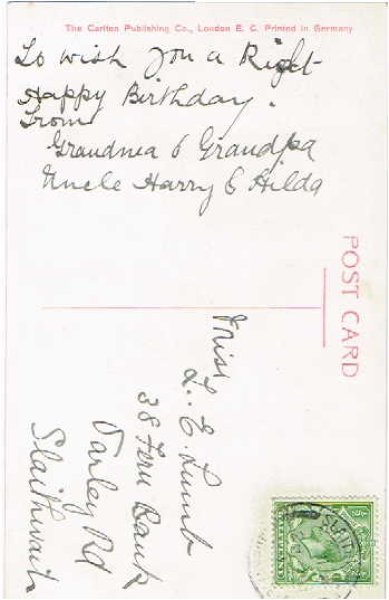 The Carlton Publishing Co., London E. C. Printed in Germany
To wish you a Right
Happy Birthday.
From
Grandma & Grandpa
Uncle Harry & Hilda
POST CARD
Miss
L. E. Lumb
38 Fern Bank
Varley Rd
Slaithwaite